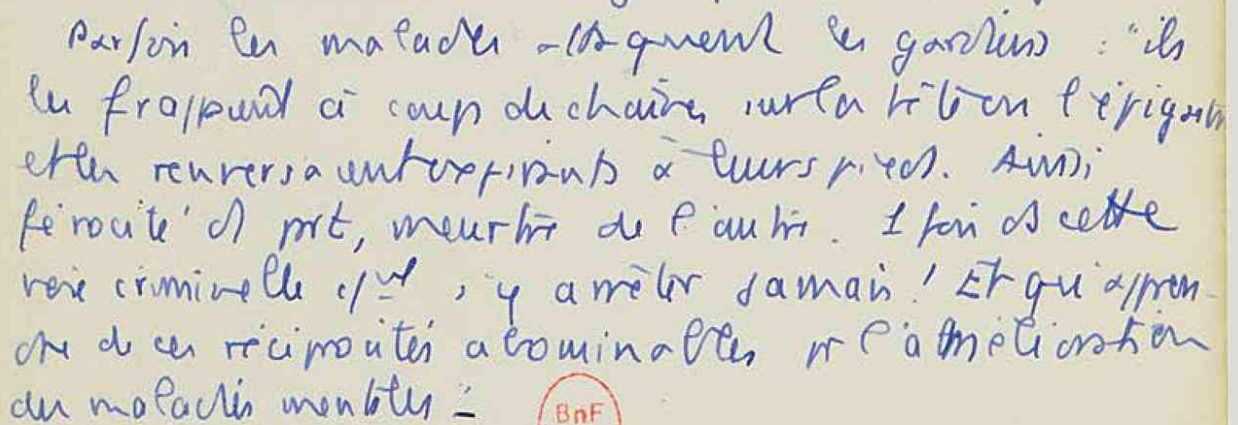 Parfois les malades attaquent les gardiens : "ils
les frappent à coup de chaises sur la tête ou l'épigastre
et les renversaient expirants à leurs pieds. Ainsi
férocité d'1 part, meurtre de l'autre. 1 fois ds cette
voie criminelle s'y arrêter jamais ! Et qu'appren-
dre de ces réciprocités abominables pr l'amélioration
des maladies mentales
BnF